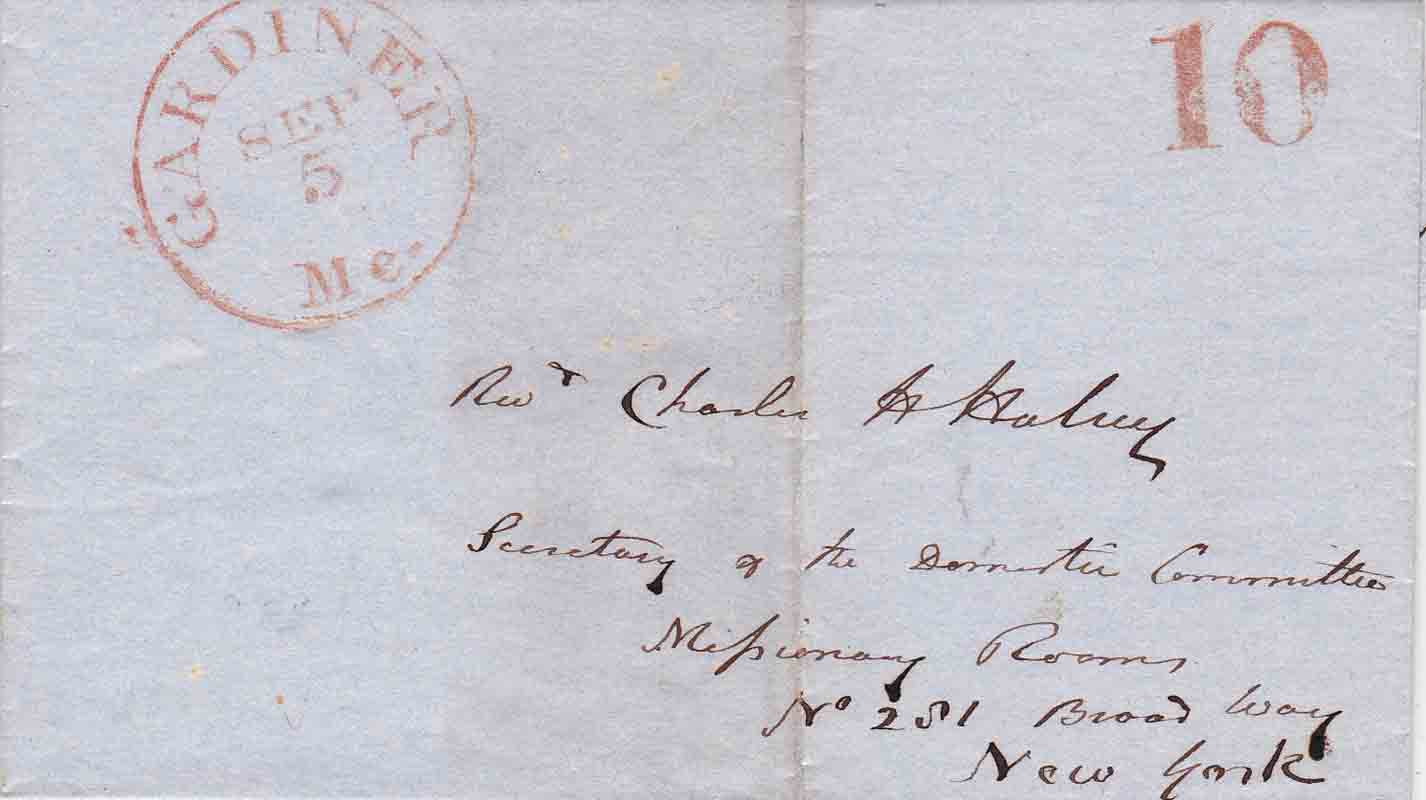 GARDINER
SEP
5
Me.
10
Revd Charles H Halsey
Secretary of the Domestic Committee
Missionary Rooms
No 281 Broad Way
New York